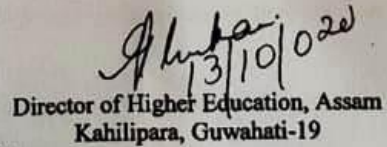 13/10/020
Director of Higher Education, Assam
Kahilipara, Guwahati-19